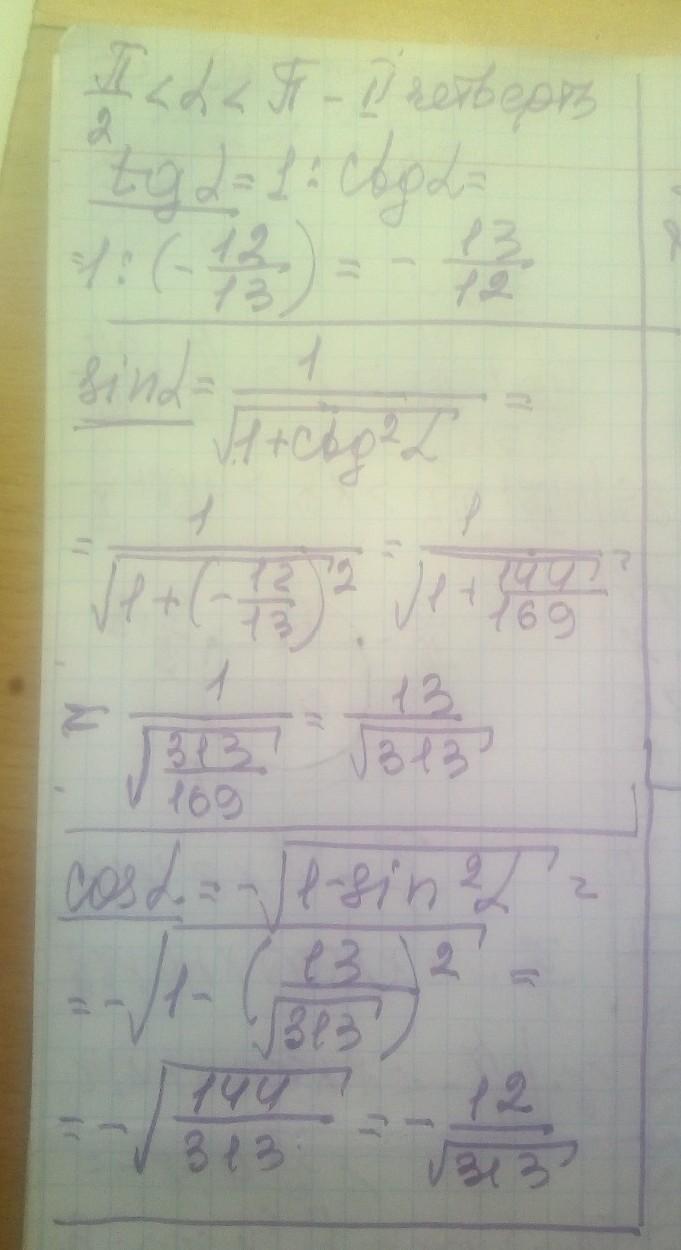 π/2 < α < π - II четверть
tg α = 1 : ctg α =
= 1 : (- 12/13) = - 13/12
sin α = 1/√(1 + ctg² α) =
= 1/√(1 + (- 12/13)²) = 1/√(1 + 144/169) =
= 1/√(313/169) = 13/√313
cos α = -√(1 - sin² α) =
= -√(1 - (13/√313)²) =
= -√(144/313) = - 12/√313